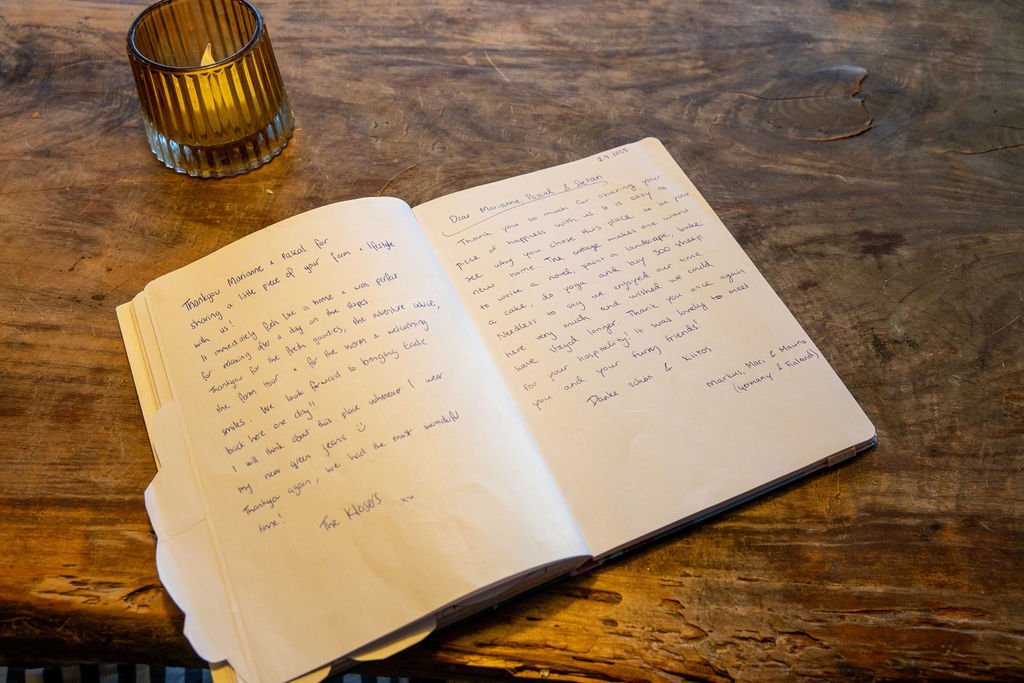 Thankyou Marianne & Pascal for
sharing a little piece of your farm & lifestyle
with us!
It immediately felt like a home & was perfect
for relaxing after a day on the slopes.
Thankyou for the fresh goodies, the adventure advice,
the farm tour & for the warm & welcoming
smiles. We look forward to bringing
back here one day!!
I will think about this place whenever I wear
my new green jeans :)
Thankyou again, we had the most wonderful
time!
The Klosers xx
2.9.2025
Dear Marianne Pascal &
Thank you so much for sharing your
piece of happiness with us it is easy to
see why you chose this place to be your
new home. The cottage makes one want
to write a novel, paint a landscape, bake
a cake, do yoga and buy 300 sheep.
Needless to say we enjoyed our time
here very much and wished we could
have stayed longer. Thank you once again
for your hospitality! It was lovely to meet
you and your furry friends!
Danke schön & Kiitos
Markus, Mari & Mauno
(Germany & Finland)